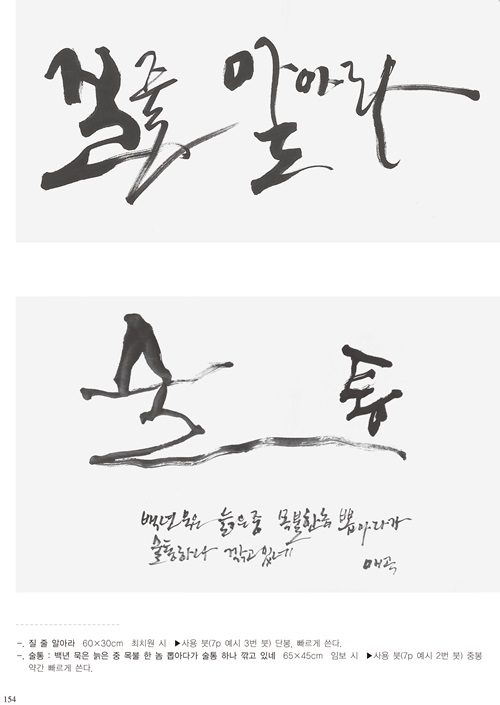 질줄 알아라
술 통
백년 묵은 늙은 중 목불한놈 뽑아다가
술통하나 깎고 있네
매곡
-. 질 줄 알아라 60×30cm 최치원 시 ▶사용 붓(7p 예시 3번 붓) 단봉, 빠르게 쓴다.
-. 술통 : 백년 묵은 늙은 중 목불 한 놈 뽑아다가 술통 하나 깎고 있네 65×45cm 임보 시 ▶사용 붓(7p 예시 2번 붓) 중봉
약간 빠르게 쓴다.
154